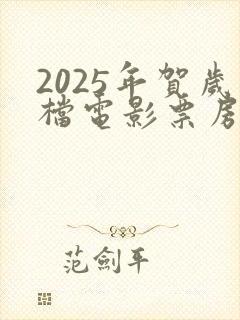 2025年賀歲
檔電影票房
范劍平